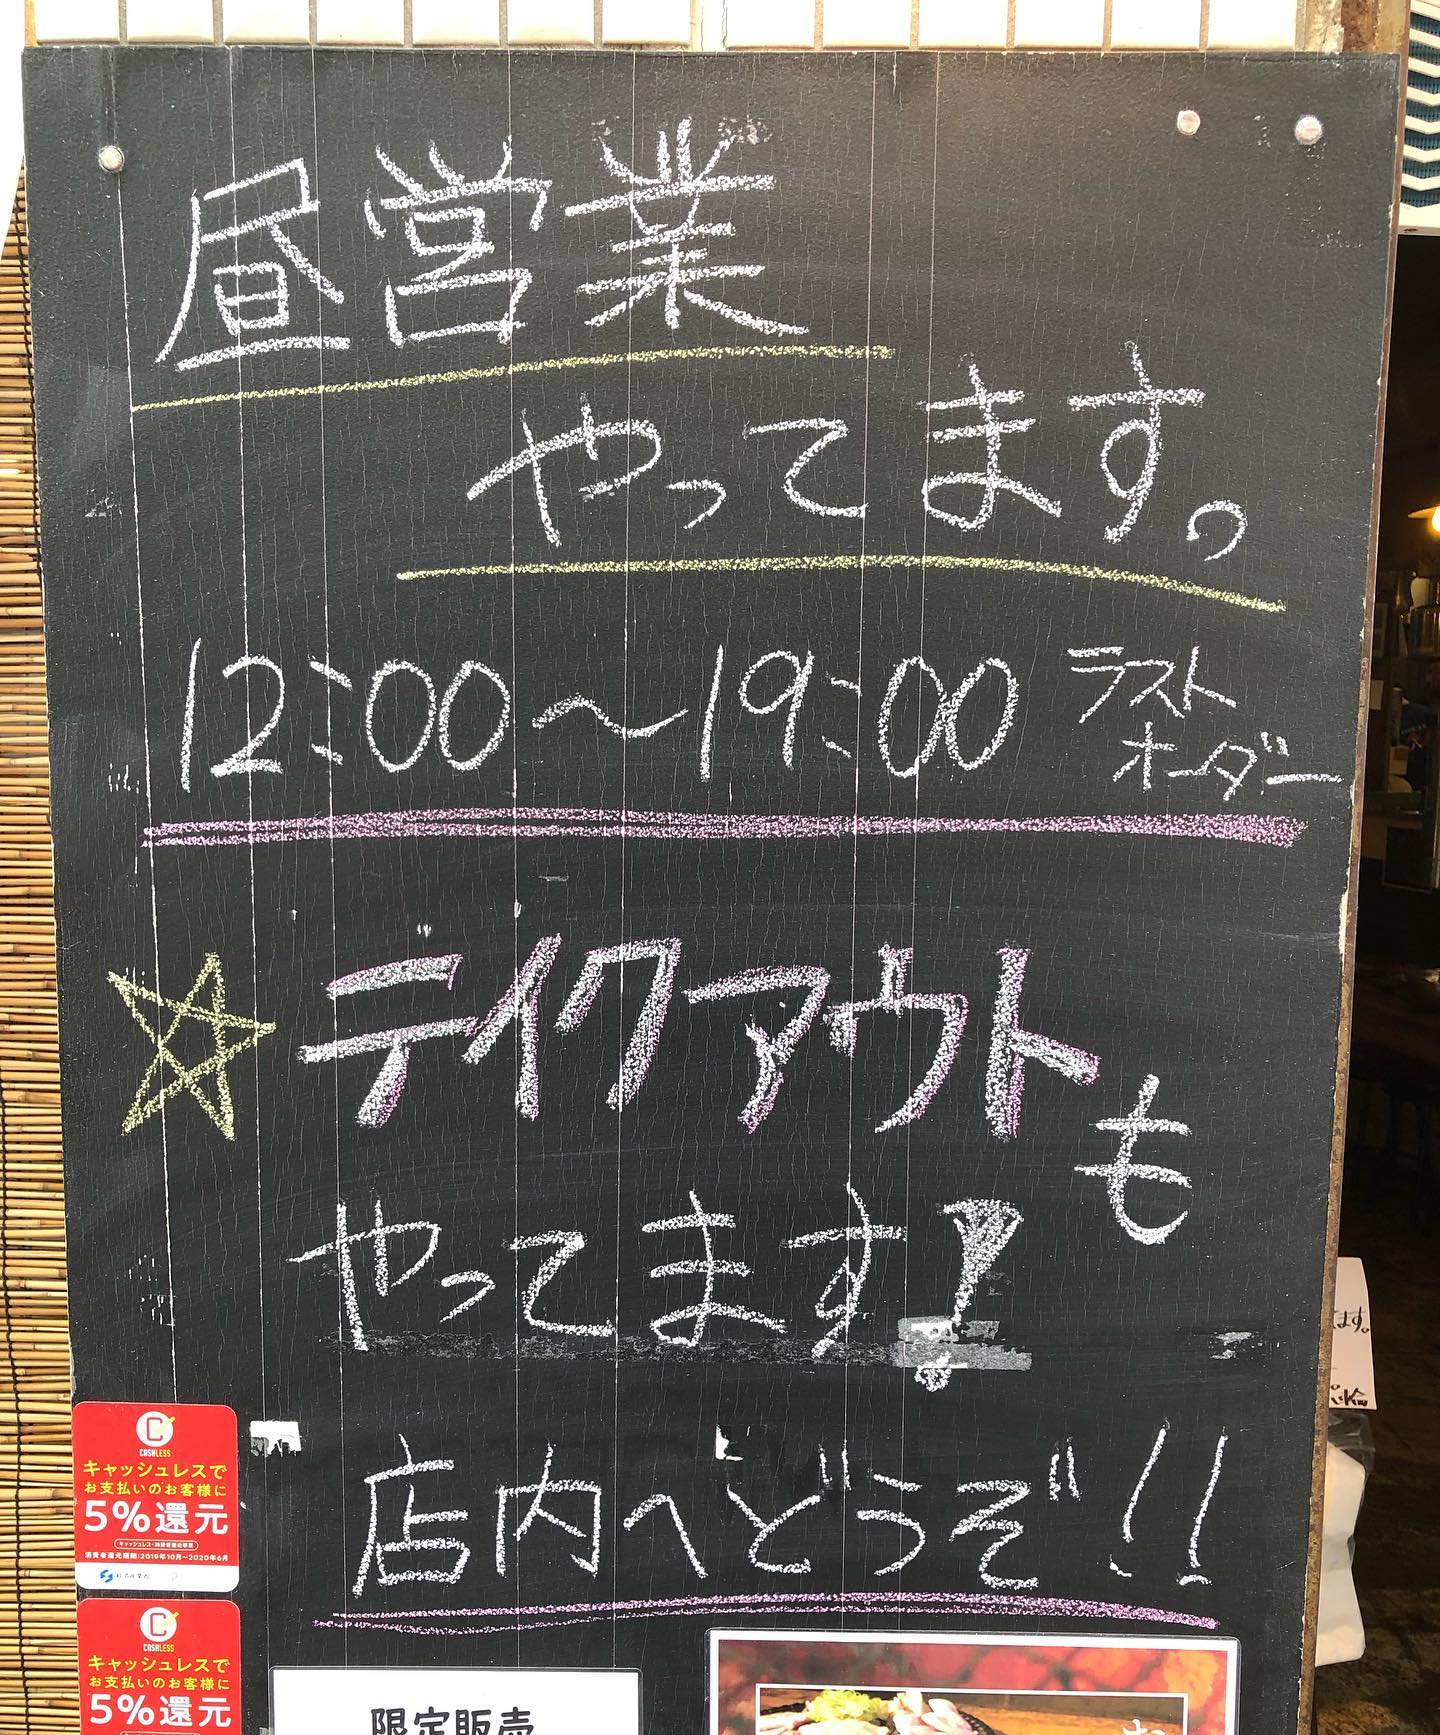 昼営業
やってます。
12:00〜19:00 ラスト
オーダー
テイクアウトも
やってます!
店内へどうぞ!!
CASHLESS
キャッシュレスで
お支払いのお客様に
5%還元
キャッシュレス・消費者還元事業
消費者還元期間:2019年10月〜2020年6月
経済産業省
CASHLESS
キャッシュレスで
お支払いのお客様に
5%還元
限定販売
ます。